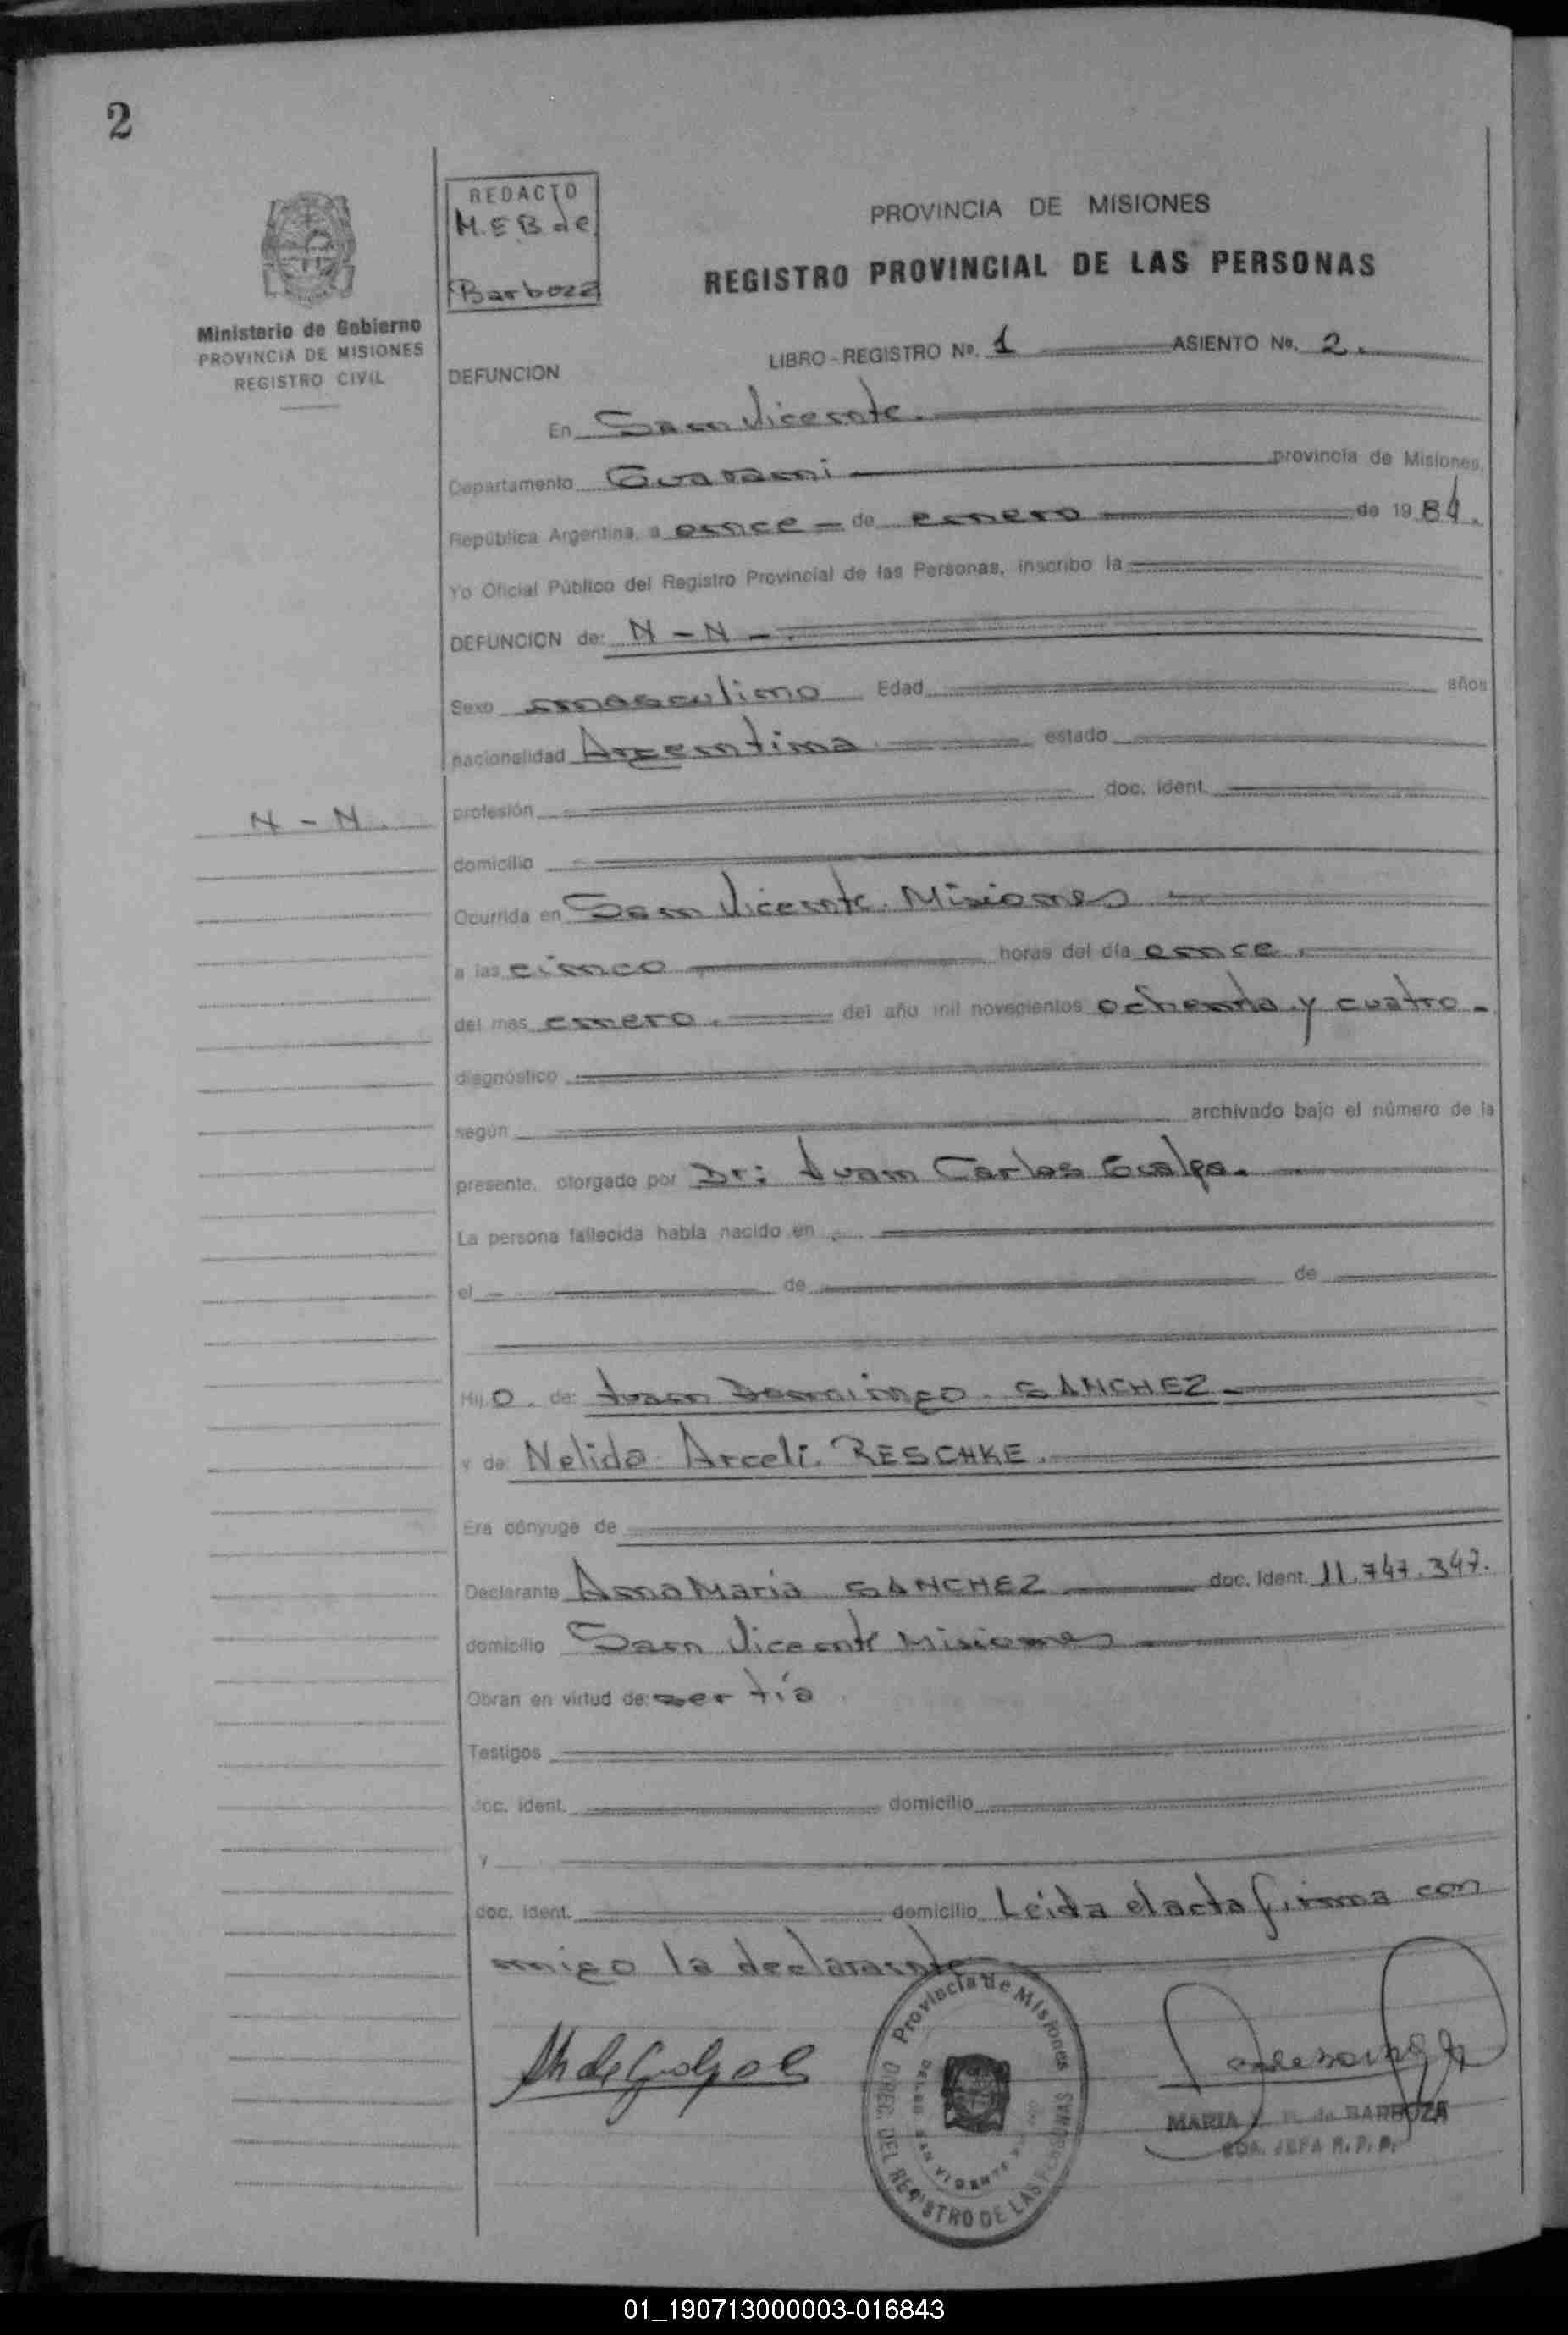 2
REDACTO
M.E.B de
Barboza
Ministerio de Gobierno
PROVINCIA DE MISIONES
REGISTRO CIVIL
PROVINCIA DE MISIONES
REGISTRO PROVINCIAL DE LAS PERSONAS
LIBRO-REGISTRO Nº. 1 ASIENTO Nº. 2.
DEFUNCION
En San Vicente.
Departamento Guarani provincia de Misiones,
República Argentina, a once - de enero de 1984.
Yo Oficial Público del Registro Provincial de las Personas, inscribo la
DEFUNCION de: N - N -.
Sexo masculino Edad años
nacionalidad Argentina estado
N - N.
profesión doc. ident.
domicilio
Ocurrida en San Vicente. Misiones
a las cinco horas del día once.
del mes enero. del año mil novecientos ochenta y cuatro -
diagnóstico
según archivado bajo el número de la
presente, otorgado por Dr: Juan Carlos
La persona fallecida había nacido en
el de de
Hij O. de: Juan Domingo - SANCHEZ -
y de Nelida Arceli. RESCHKE.
Era cónyuge de
Declarante Ana Maria SANCHEZ doc. Ident. 11.747.347.
domicilio San Vicente Misiones
Obran en virtud de: ser tía
Testigos
doc. ident. domicilio
y
doc. ident. domicilio Leida el acta firma con
migo la declarante
Provincia de Misiones
DIREC. DEL REGISTRO DE LAS PERSONAS
SAN VICENTE
MARIA de BARBOZA
JEFA R.P.P.
01_190713000003-016843